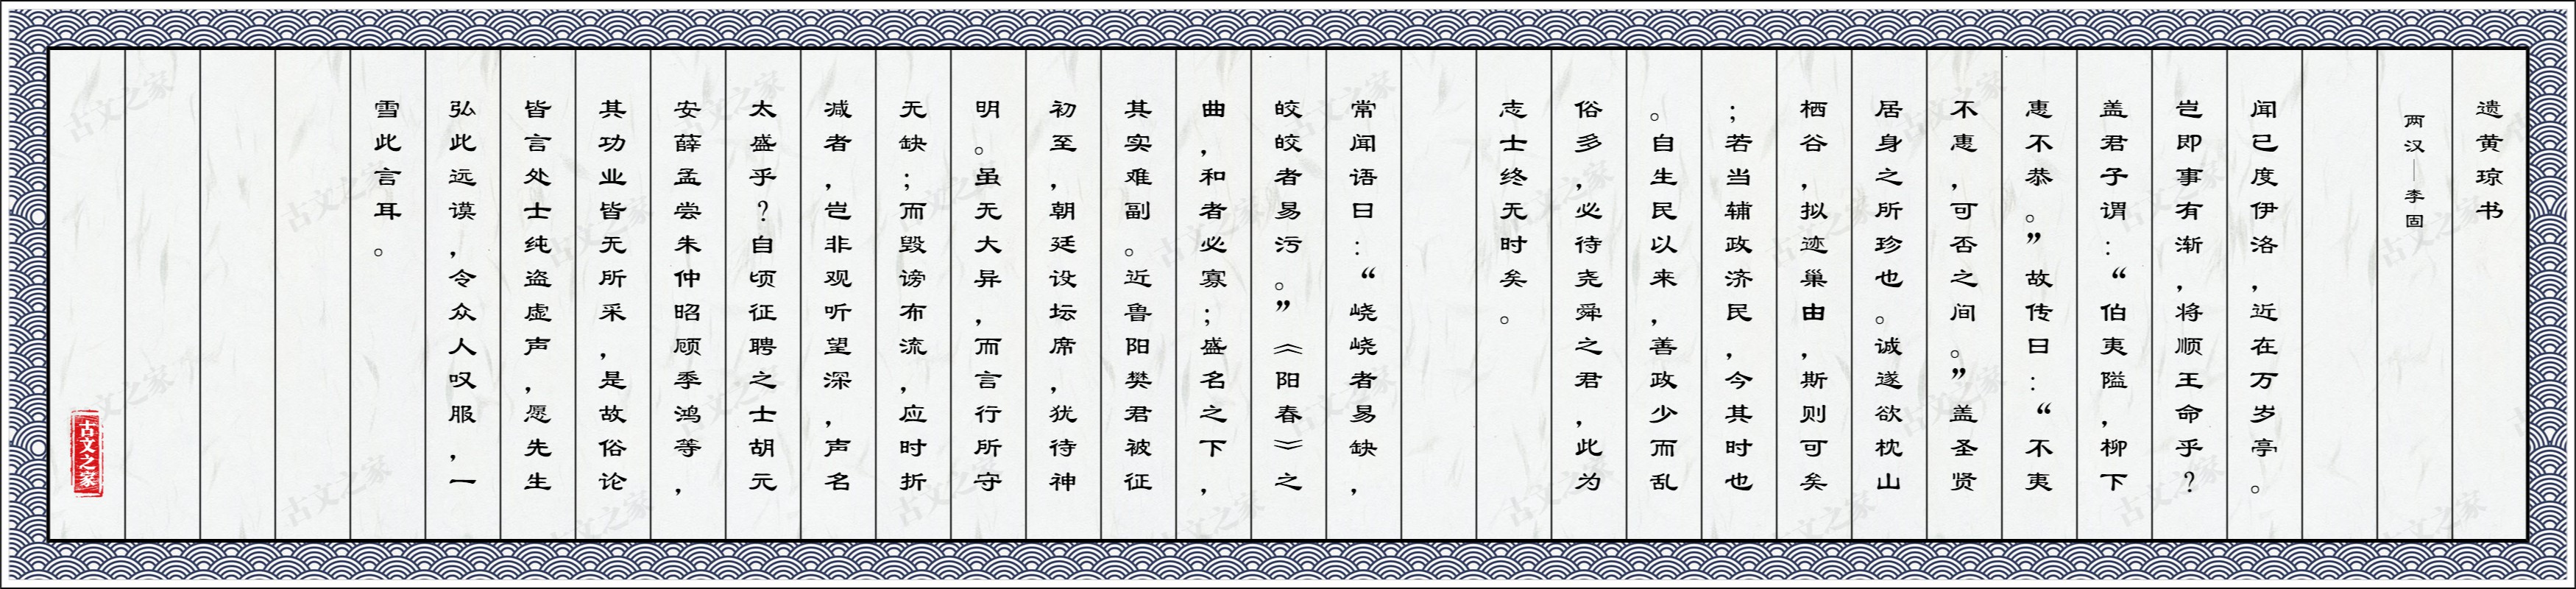 遗黄琼书
两汉—李固
闻已度伊洛，近在万岁亭。
岂即事有渐，将顺王命乎？
盖君子谓：“伯夷隘，柳下
惠不恭。”故传曰：“不夷
不惠，可否之间。”盖圣贤
居身之所珍也。诚遂欲枕山
栖谷，拟迹巢由，斯则可矣
；若当辅政济民，今其时也
。自生民以来，善政少而乱
俗多，必待尧舜之君，此为
志士终无时矣。
常闻语曰：“峣峣者易缺，
皎皎者易污。”《阳春》之
曲，和者必寡；盛名之下，
其实难副。近鲁阳樊君被征
初至，朝廷设坛席，犹待神
明。虽无大异，而言行所守
无缺；而毁谤布流，应时折
减者，岂非观听望深，声名
太盛乎？自顷征聘之士胡元
安薛孟尝朱仲昭顾季鸿等，
其功业皆无所采，是故俗论
皆言处士纯盗虚声，愿先生
弘此远谟，令众人叹服，一
雪此言耳。
古文之家